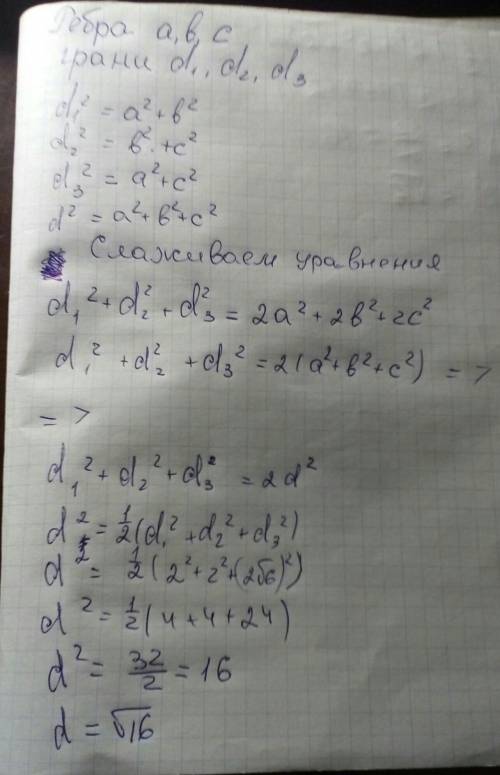 Ребра a, b, c
грани d₁, d₂, d₃
d₁² = a² + b²
d₂² = b² + c²
d₃² = a² + c²
d² = a² + b² + c²
Слаживаем уравнения
d₁² + d₂² + d₃² = 2a² + 2b² + 2c²
d₁² + d₂² + d₃² = 2(a² + b² + c²) =>
=>
d₁² + d₂² + d₃² = 2d²
d² = ½(d₁² + d₂² + d₃²)
d² = ½(2² + 2² + (2√6)²)
d² = ½(4 + 4 + 24)
d² = 32/2 = 16
d = √16